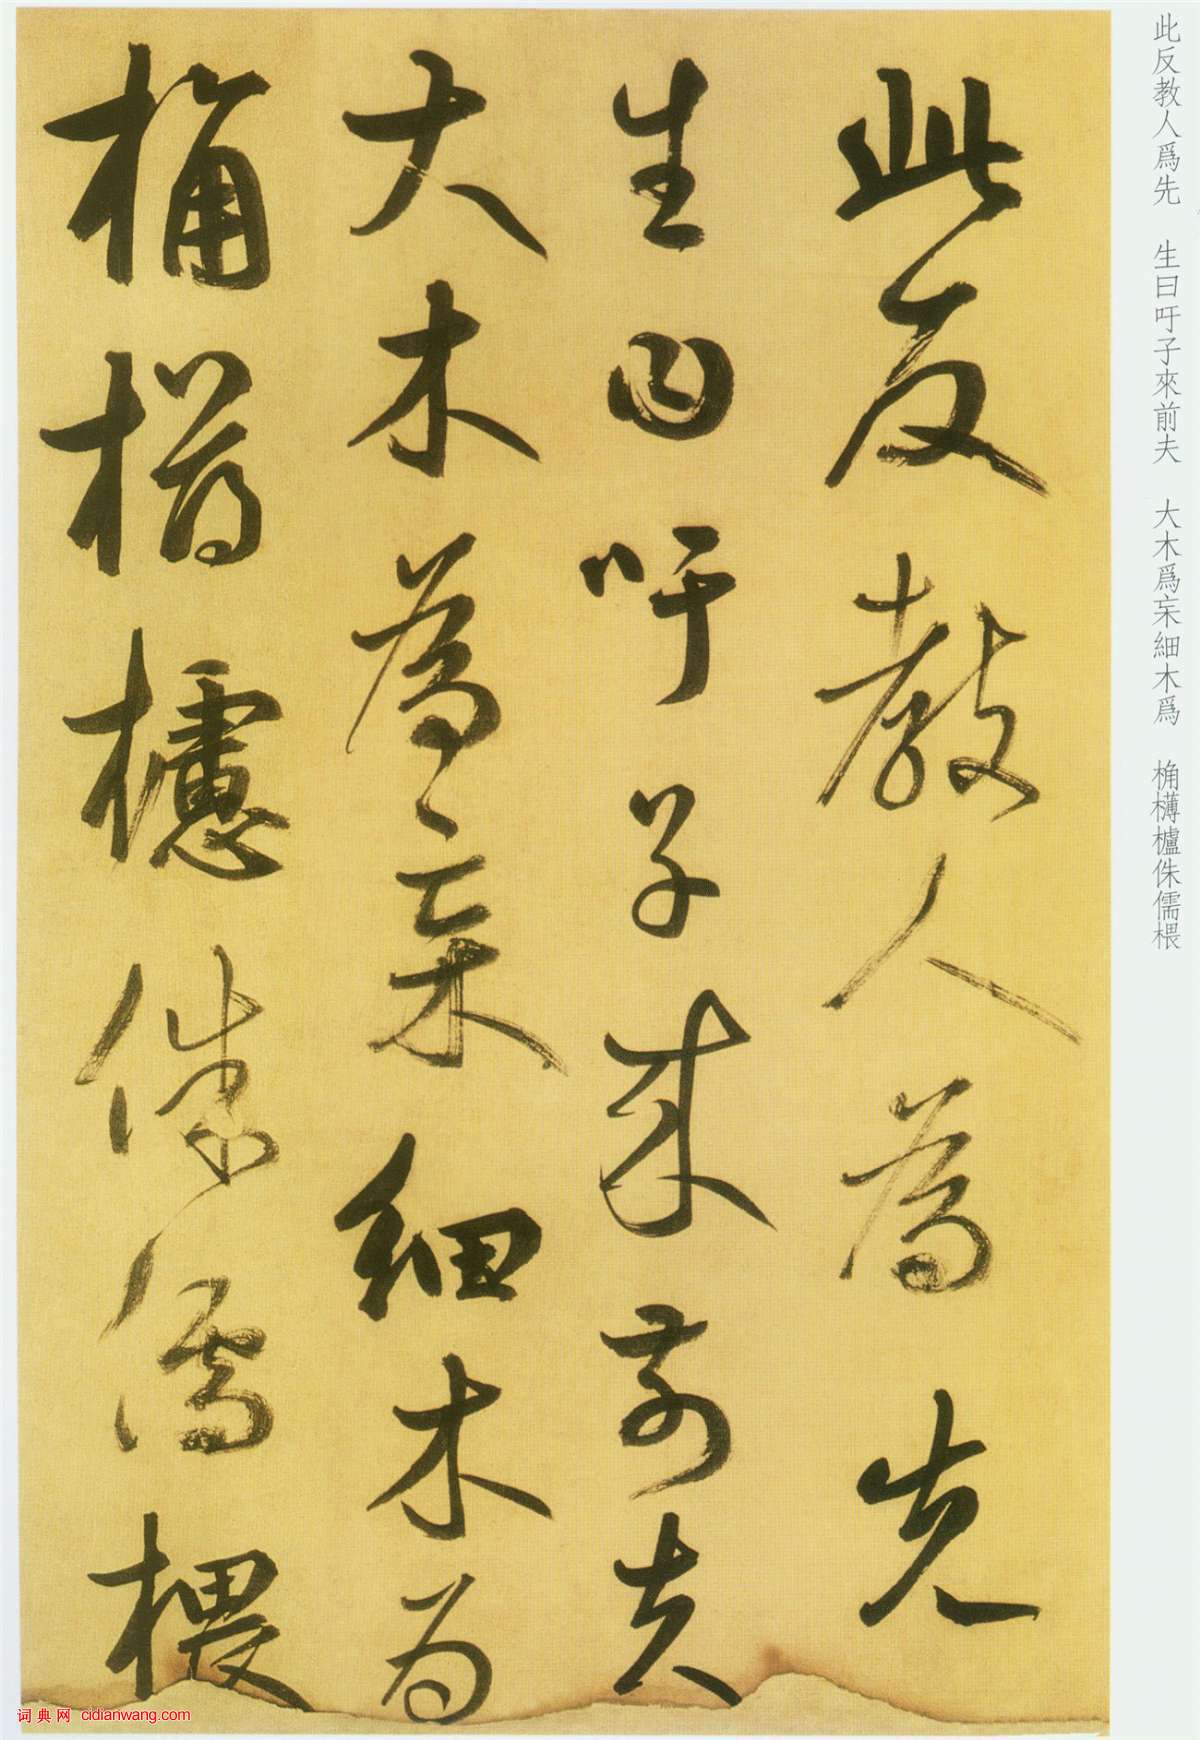 此反教人為先
生曰吁子來前夫
大木為杗細木為
桷欂櫨侏儒椳
此反教人爲先 生曰吁子來前夫 大木爲杗細木爲 桷欂櫨侏儒椳
词典网 cidianwang.com